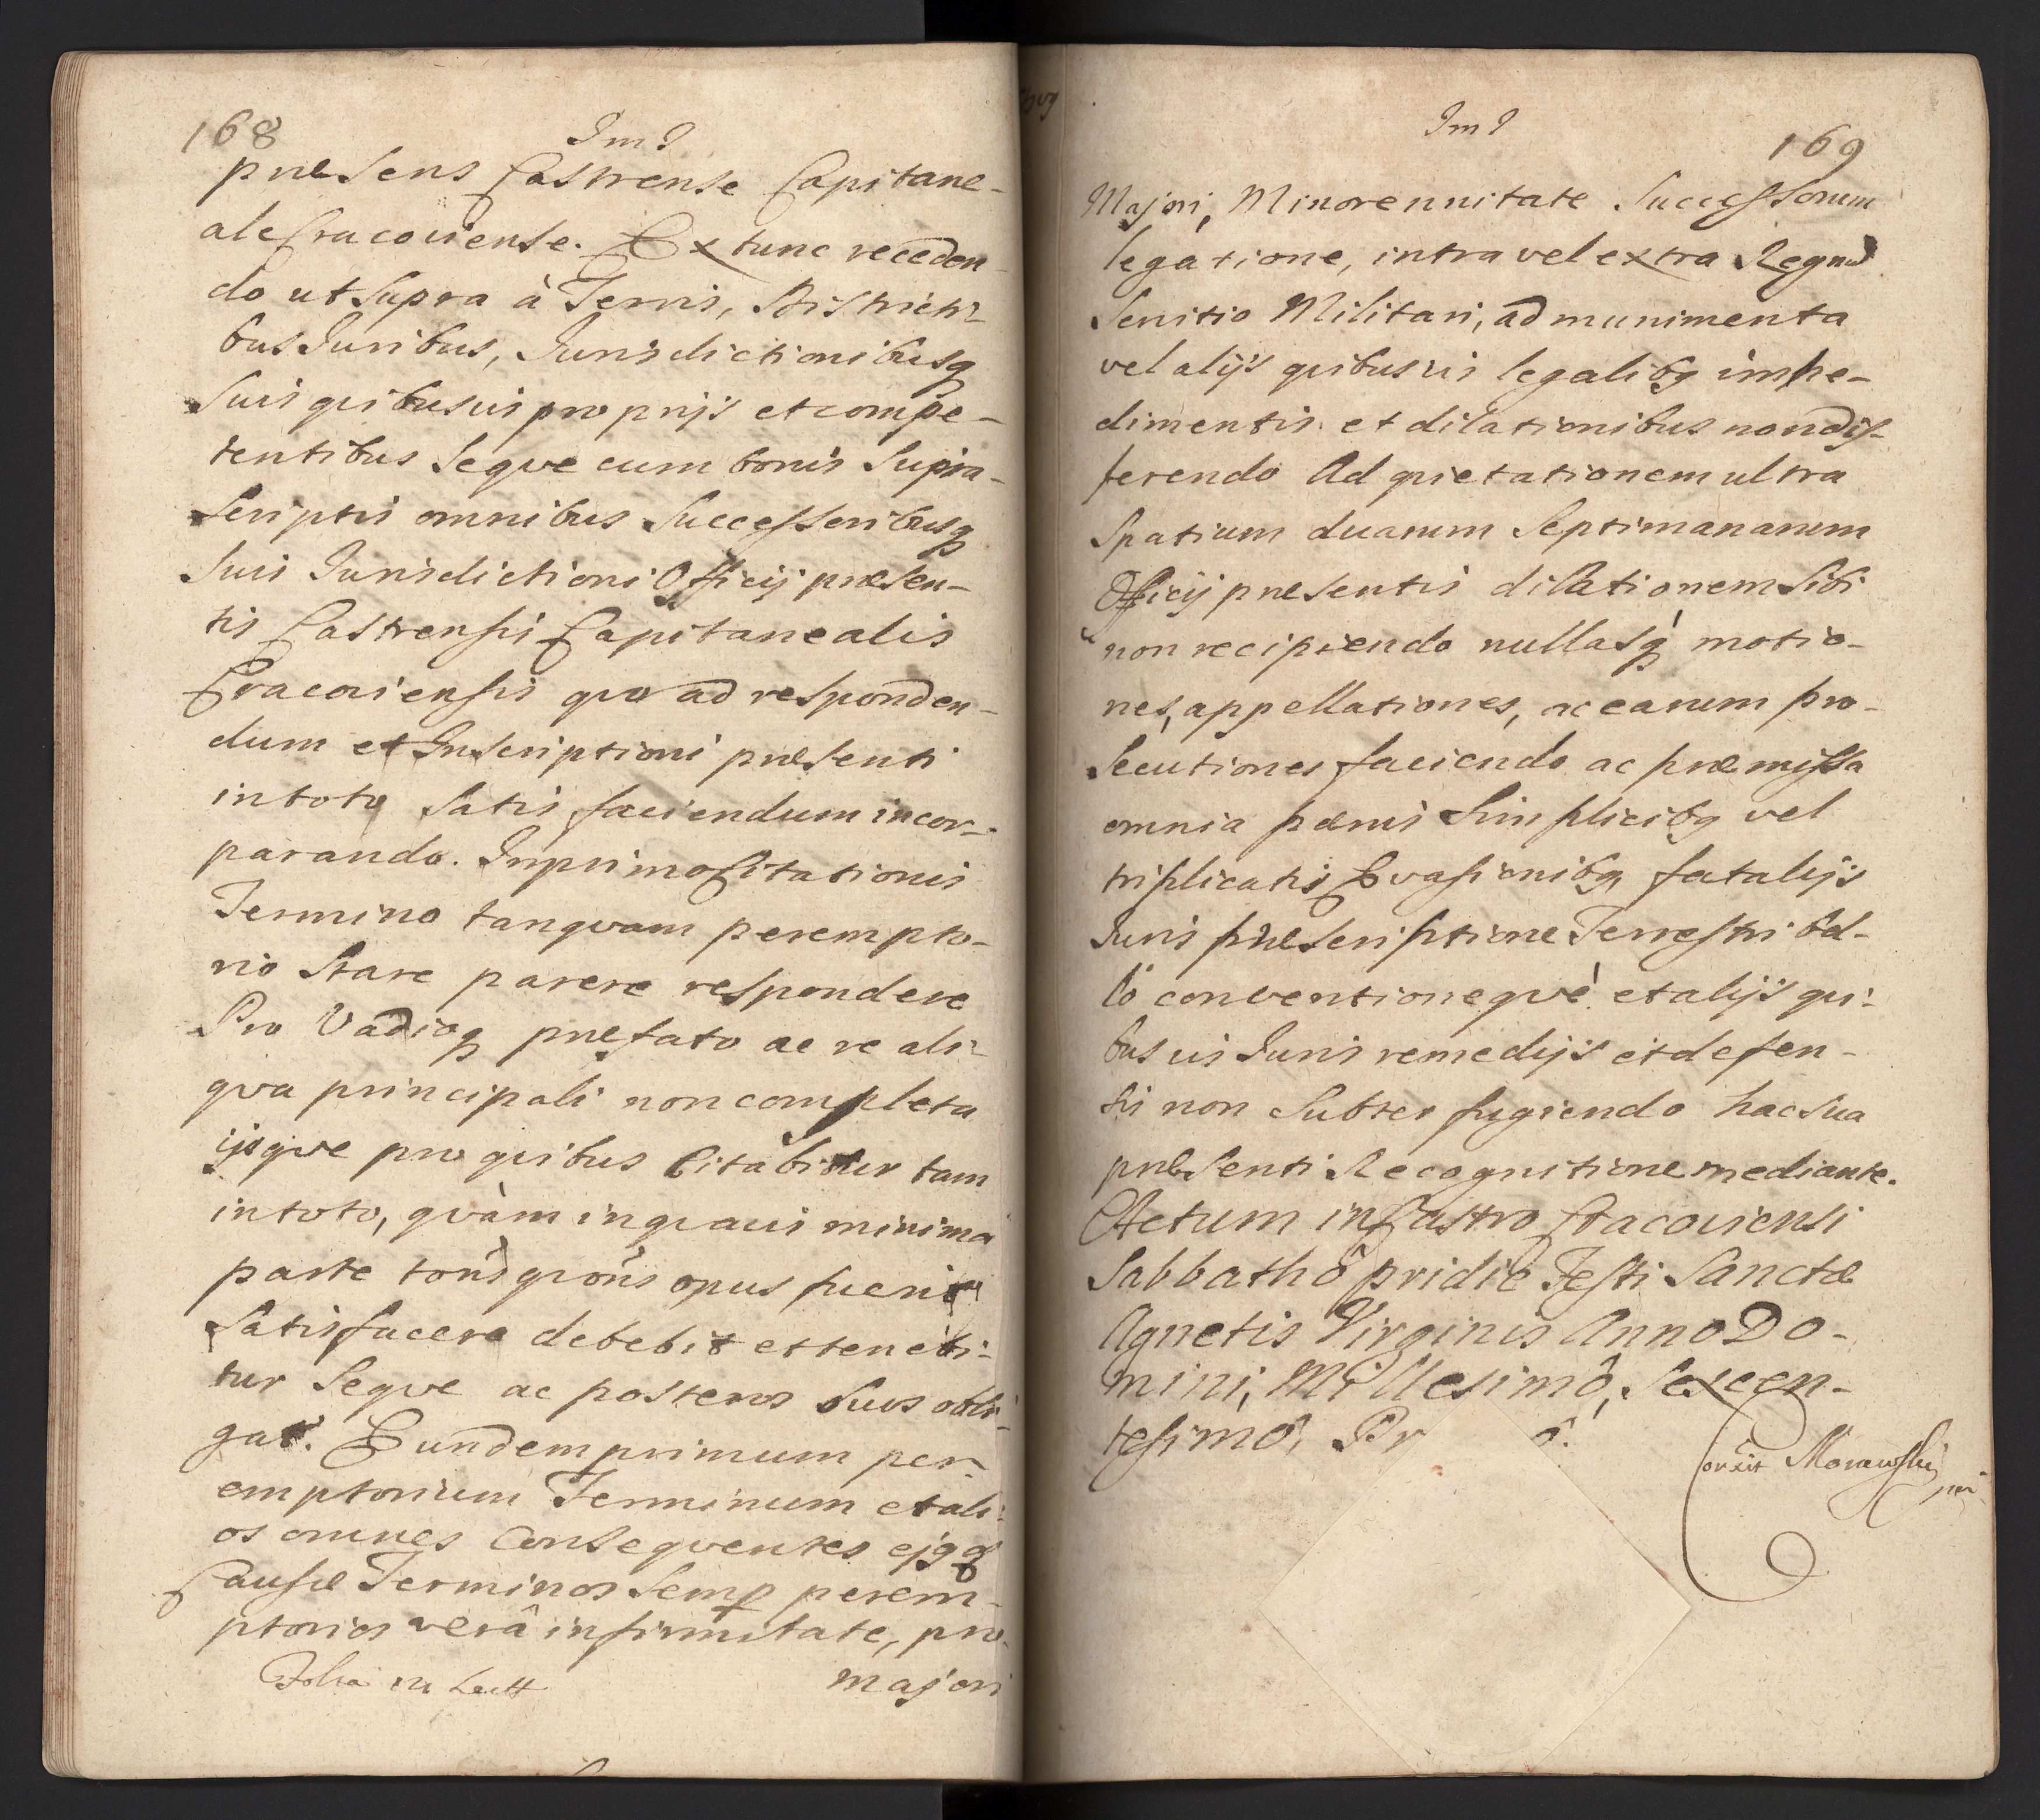 168
præsens Castrense Capitane-
ale Cracoviense. Extunc receden-
do ut supra à Terris, Districti-
bus Juribus, Jurisdictionibusq
suis quibusvis proprijs et compe-
tentibus seque cum bonis supra-
scriptis omnibus successoribusq
suis Jurisdictioni Officij præsen-
tis Castrensis Capitanealis
Cracoviensis quo ad responden-
dum et Inscriptioni præsenti
in toto satis faciendum incor-
parando. In primo Citationis
Termino tanquam perempto-
rio stare parere respondere
Pro Vadioq præfato ac re ali-
qva principali non completa
ijsqve pro quibus Citabitur tam
in toto, quàm in quavis minima
parte opus fuerit
satisfacere debebit et tenebi-
tur seqve ac posteros suos obli-
gat. Eundem primum per-
emptorium Terminum et ali-
os omnes consequentes ejgq
Causæ Terminos semp perem-
ptorios verâ infirmitate, pro
Folia majori
169
Majori, Minorennitate Successorum
legatione, intra vel extra Regnũ
Servitio Militari, ad munimenta
vel alijs quibusvis legalibq impe-
dimentis et dilationibus non dif-
ferendo Ad quietationem ultra
Spatium duarum Septimanarum
Officij præsentis dilationem sibi
non recipiendo nullasq motio-
nes, appellationes, ac earum pro-
secutiones faciendo ac præmissa
omnia pænis simplicibq vel
triplicatis Evasionibq fatalijs
Juris præscriptione Terrestri bel-
lô conventioneqvè et alijs qui-
bus vis Juris remedijs et defen-
sis non subter fugiendo hac sua
præsenti Recognitione mediante.
Actum in Castro Cracoviensi
Sabbathô pridie Festi Sanctæ
Agnetis Virginis Anno Do-
mini, Millesimô, Sexcen-
tesimô, Pr ô.
Morawski